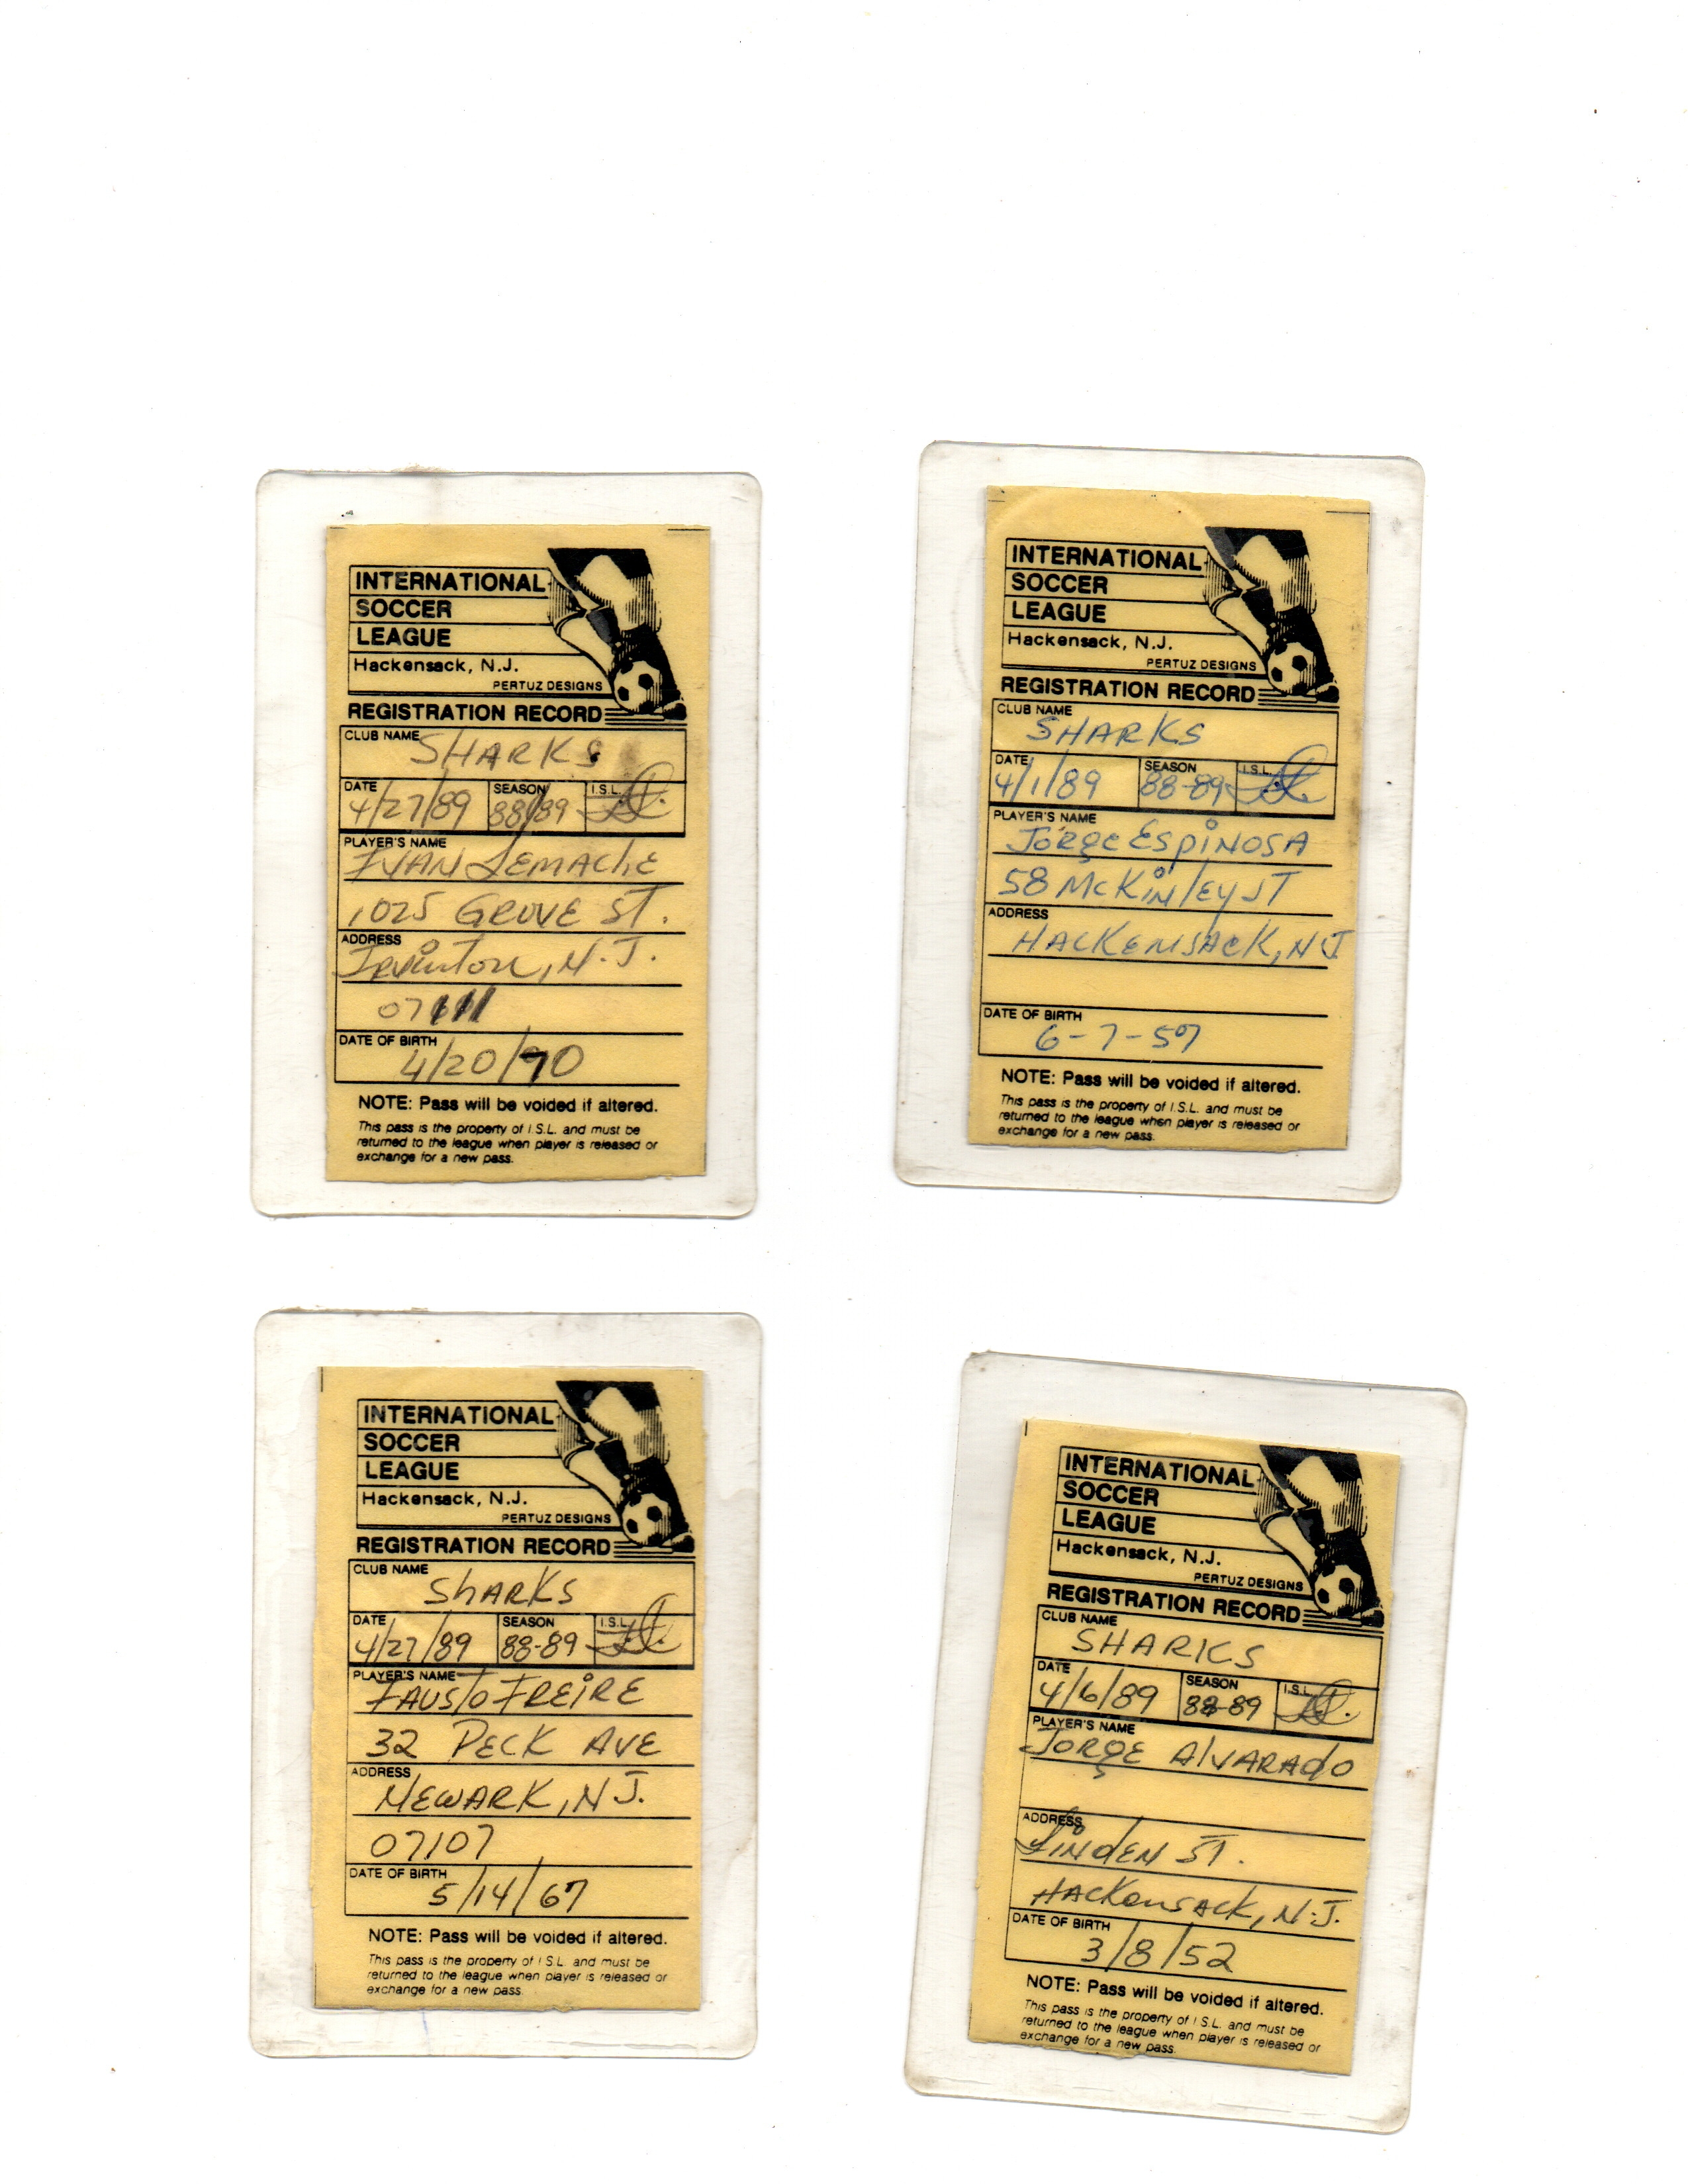 INTERNATIONAL
SOCCER
LEAGUE
Hackensack, N.J.
PERTUZ DESIGNS
REGISTRATION RECORD
CLUB NAME SHARKS
DATE SEASON I.S.L.
4/27/89 88/89
PLAYER'S NAME
IVAN LEMACHE
1025 GROVE ST.
ADDRESS
Irvinton, N.J.
07111
DATE OF BIRTH
4/20/70
NOTE: Pass will be voided if altered.
This pass is the property of I.S.L. and must be
returned to the league when player is released or
exchange for a new pass.
INTERNATIONAL
SOCCER
LEAGUE
Hackensack, N.J.
PERTUZ DESIGNS
REGISTRATION RECORD
CLUB NAME
SHARKS
DATE SEASON I.S.L.
4/1/89 88-89
PLAYER'S NAME
JORGE ESPINOSA
58 McKINLEY ST
ADDRESS
HACKENSACK, NJ
DATE OF BIRTH
6-7-57
NOTE: Pass will be voided if altered.
This pass is the property of I.S.L. and must be
returned to the league when player is released or
exchange for a new pass.
INTERNATIONAL
SOCCER
LEAGUE
Hackensack, N.J.
PERTUZ DESIGNS
REGISTRATION RECORD
CLUB NAME
ShARKS
DATE SEASON I.S.L.
4/27/89 88-89
PLAYER'S NAME
FAUSTO FREIRE
32 PECK AVE
ADDRESS
NEWARK, NJ.
07107
DATE OF BIRTH
5/14/67
NOTE: Pass will be voided if altered.
This pass is the property of I.S.L. and must be
returned to the league when player is released or
exchange for a new pass.
INTERNATIONAL
SOCCER
LEAGUE
Hackensack, N.J.
PERTUZ DESIGNS
REGISTRATION RECORD
CLUB NAME
SHARKS
DATE SEASON I.S.L.
4/6/89 88-89
PLAYER'S NAME
JORGE AlVARADO
ADDRESS
LINDEN ST.
HACKENSACK, N.J.
DATE OF BIRTH
3/8/52
NOTE: Pass will be voided if altered.
This pass is the property of I.S.L. and must be
returned to the league when player is released or
exchange for a new pass.